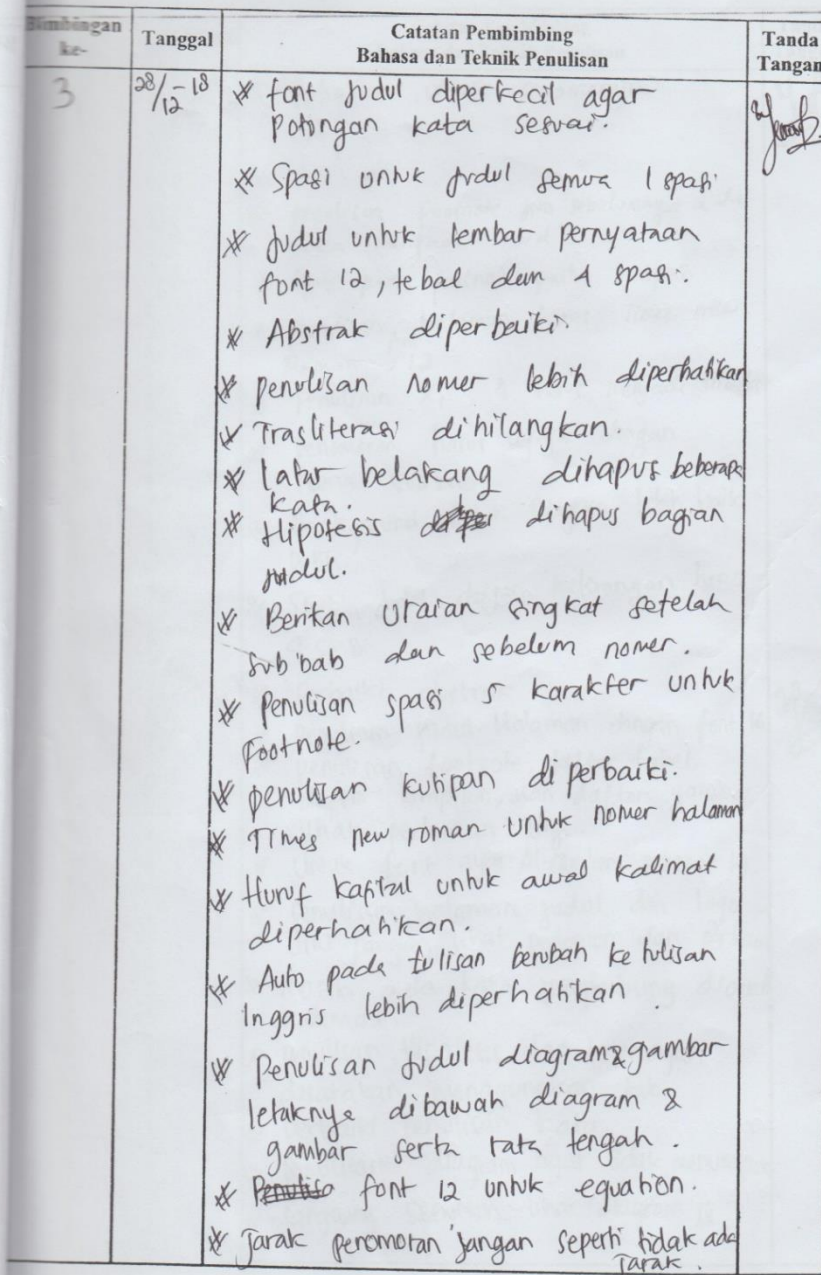 Bimbingan ke-
Tanggal
Catatan Pembimbing
Bahasa dan Teknik Penulisan
Tanda
Tangan
3
28/12-18
* font Judul diperkecil agar
potongan kata sesuai.
* Spasi untuk Judul semua 1 spasi
* Judul untuk lembar pernyataan
font 12, tebal dan 1 spasi.
* Abstrak diperbaiki.
* penulisan nomer lebih diperhatikan
* Trasliterasi dihilangkan.
* latar belakang dihapus beberapa
kata.
* Hipotesis dihapus bagian
Judul.
* Berikan uraian singkat setelah
sub bab dan sebelum nomer.
* Penulisan spasi 5 karakter untuk
Footnote.
* penulisan kutipan diperbaiki.
* Times new roman untuk nomer halaman
* Huruf kapital untuk awal kalimat
diperhatikan.
* Auto pada tulisan berubah ke tulisan
Inggris lebih diperhatikan.
* Penulisan Judul diagram & gambar
letaknya dibawah diagram &
gambar serta rata tengah.
* font 12 untuk equation.
* Jarak penomoran jangan seperti tidak ada
Jarak.